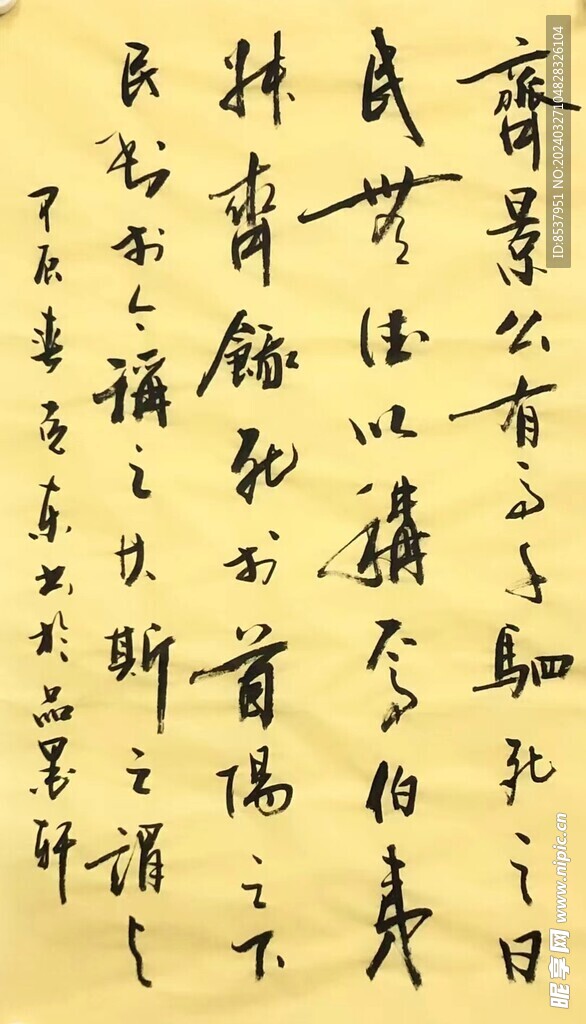 齊景公有馬千駟死之日
民無德以稱焉伯夷
叔齊餓死於首陽之下
民到於今稱之其斯之謂与
甲辰春克東書於品墨軒
ID:8537951 NO:20240327104828326104
昵享网 www.nipic.cn